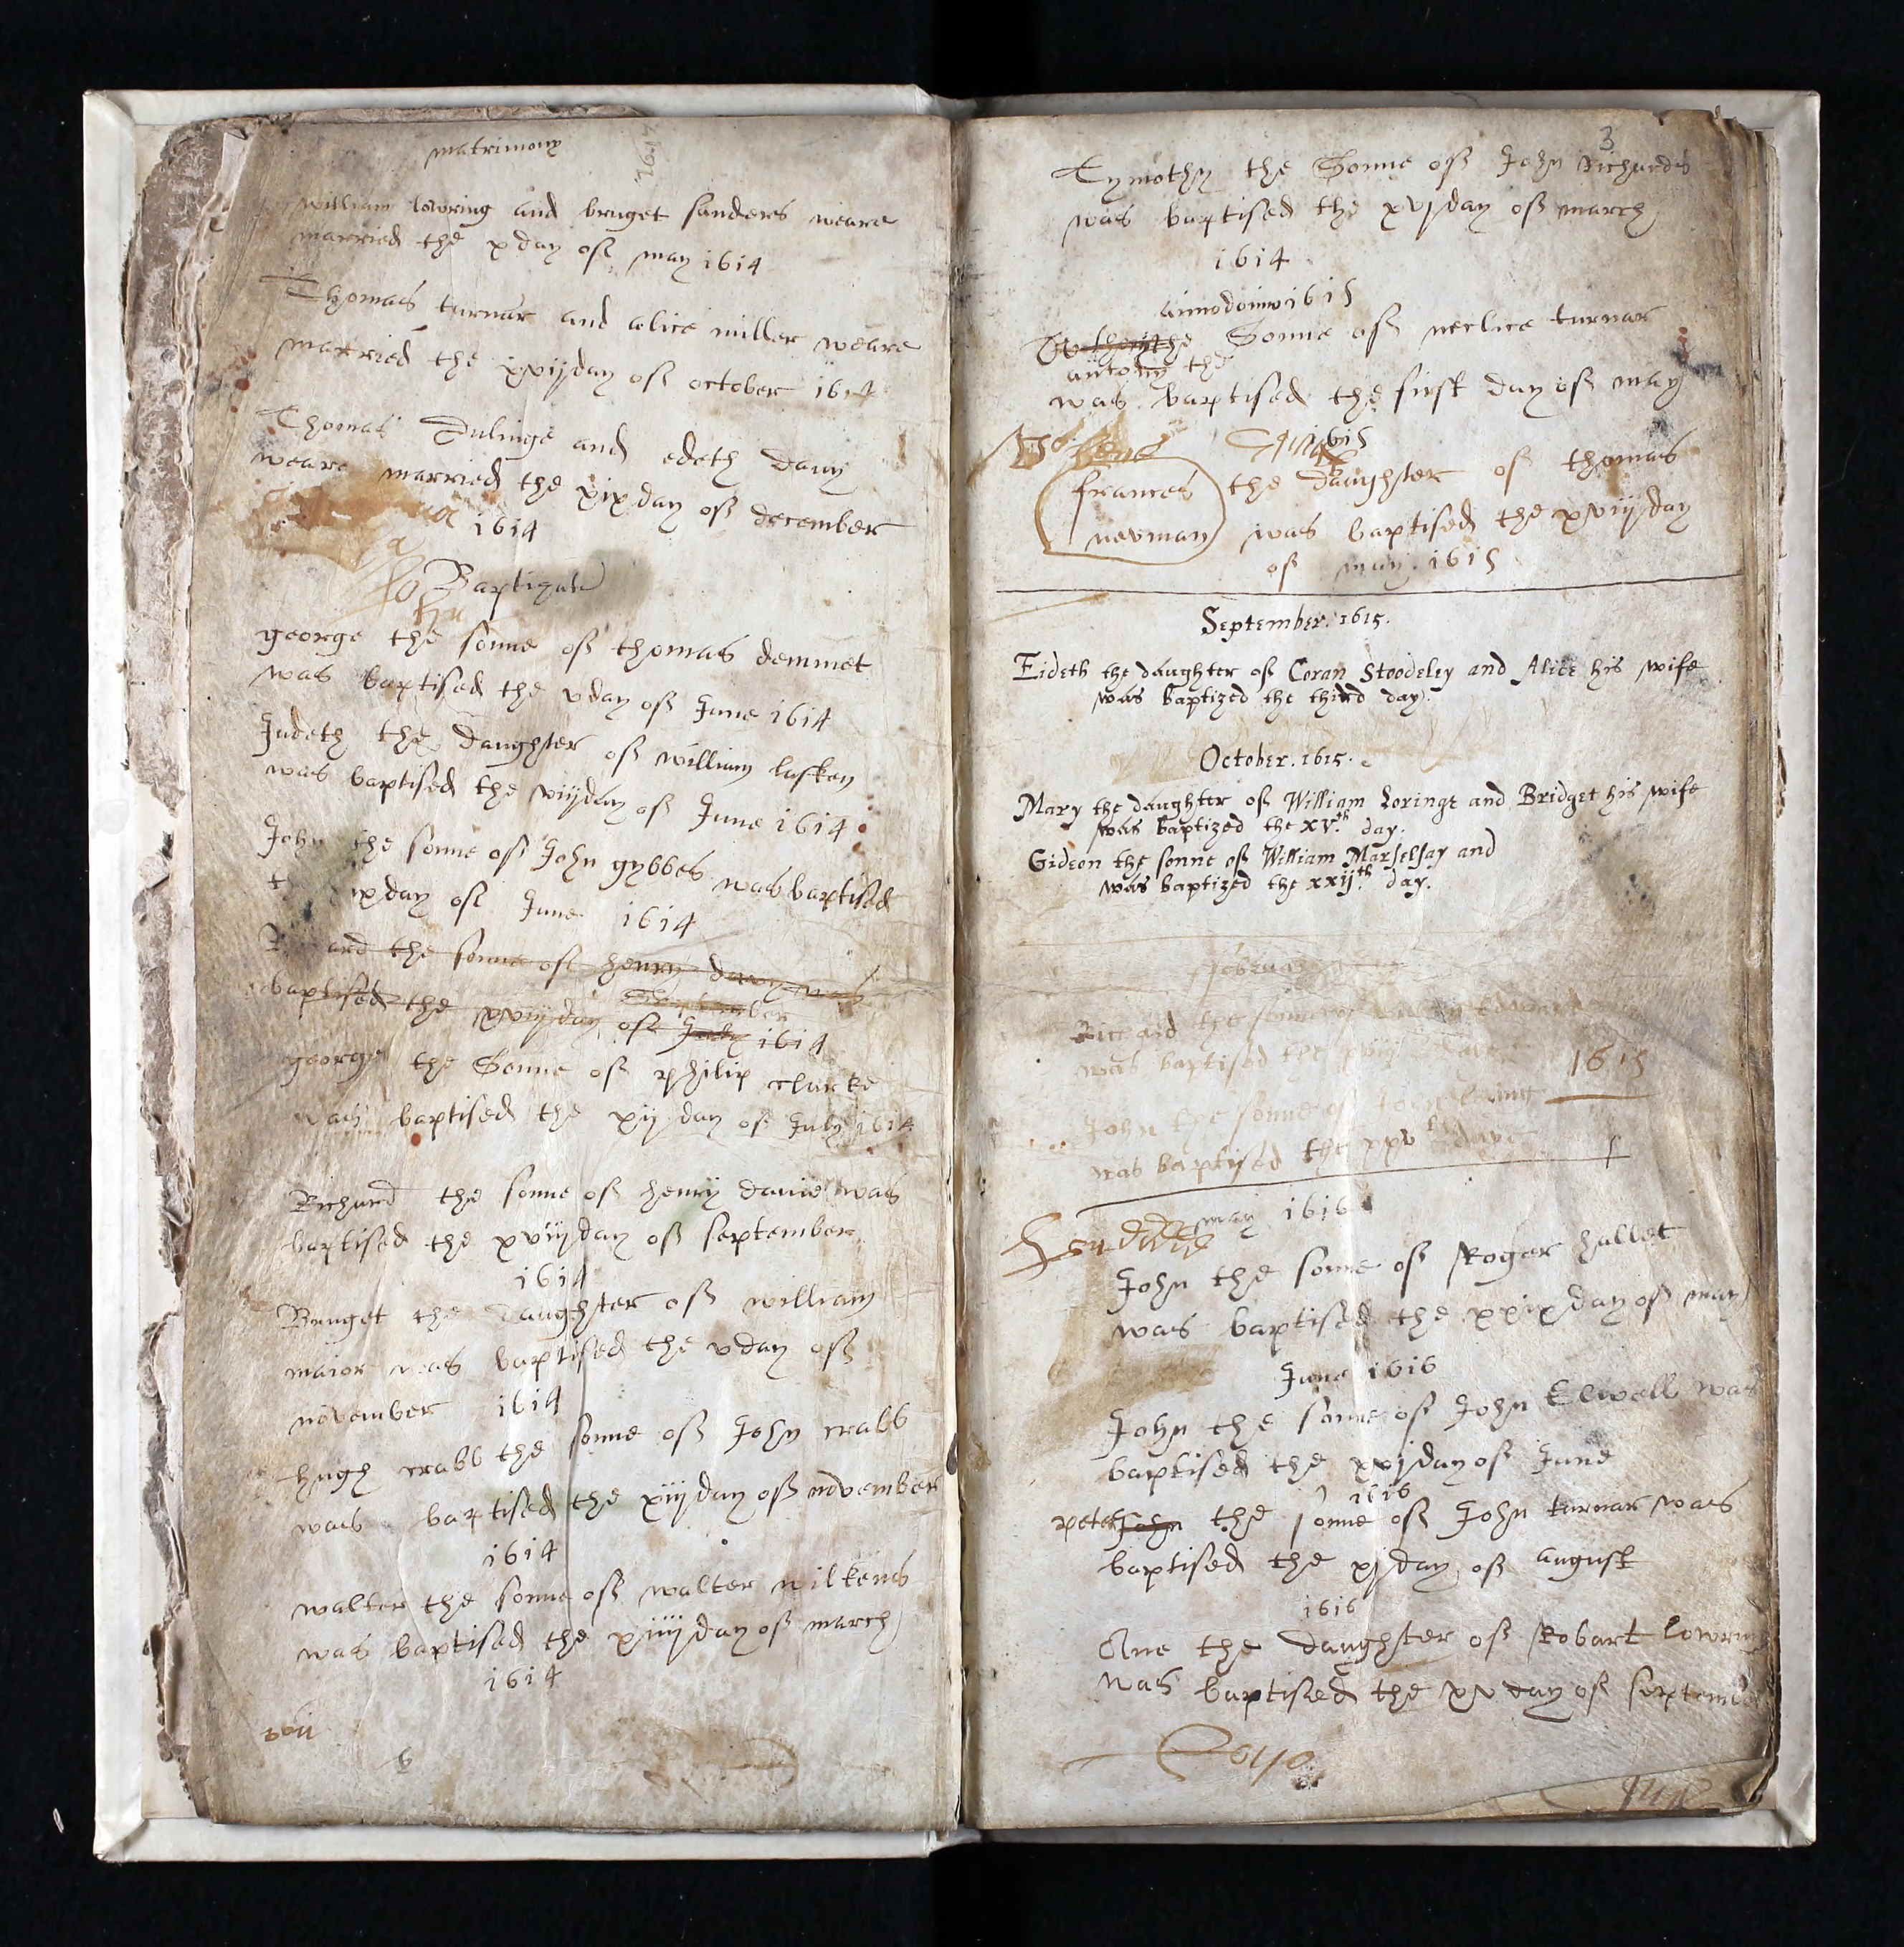 matrimony
1614
william lowring and bruget sanders weare
married the x day of may 1614
Thomas turnar and alice miller weare
married the xvij day of october 1614
Thomas Dulinge and edeth dauy
weare married the xix day of december
1614
Baptizati
george the sonne of thomas demmet
was baptised the v day of June 1614
Judeth the daughter of william lasken
was baptised the viij day of June 1614
John the sonne of John gybbes was baptised
ix day of June 1614
the sonne of henry davy was
September
baptised the xviij day of July 1614
george the Sonne of philip clarke
was baptised the xij day of July 1614
Richard the sonne of henry dauie was
baptised the xviij day of september
1614
Bruget the daughter of william
maior was baptised the v day of
november 1614
hugh crabb the sonne of John crabb
was baptised the xiij day of november
1614
walter the sonne of walter wilkens
was baptised the xiiij day of march
1614
3
Tymothy the Sonne of John Richards
was baptised the xvj day of march
1614
anno domino 1615
the Sonne of turnar
antony the
was baptised the first day of may
1615
frances the daughter of thomas
newman was baptised the xviij day
of may. 1615
September. 1615.
Eideth the daughter of Coran Stoodeley and Alice his wife
was baptized the third day.
October. 1615.
Mary the daughter of William Loringe and Bridget his wife
was baptized the xv.th day.
Gideon the sonne of William Marselsay and
was baptized the xxij.th day.
Februar
Riccard the sonne of
was baptised the 1615
John the sonne of
was baptised the xxv daye
may 1616
John the sonne of Roger hallet
was baptised the xxix day of may
June 1616
John the sonne of John Elwell was
baptised the xvj day of June
1616
peter John the sonne of John turnar was
baptised the xj day of august
1616
Ane the daughter of Robart lowring
was baptised the xv day of september